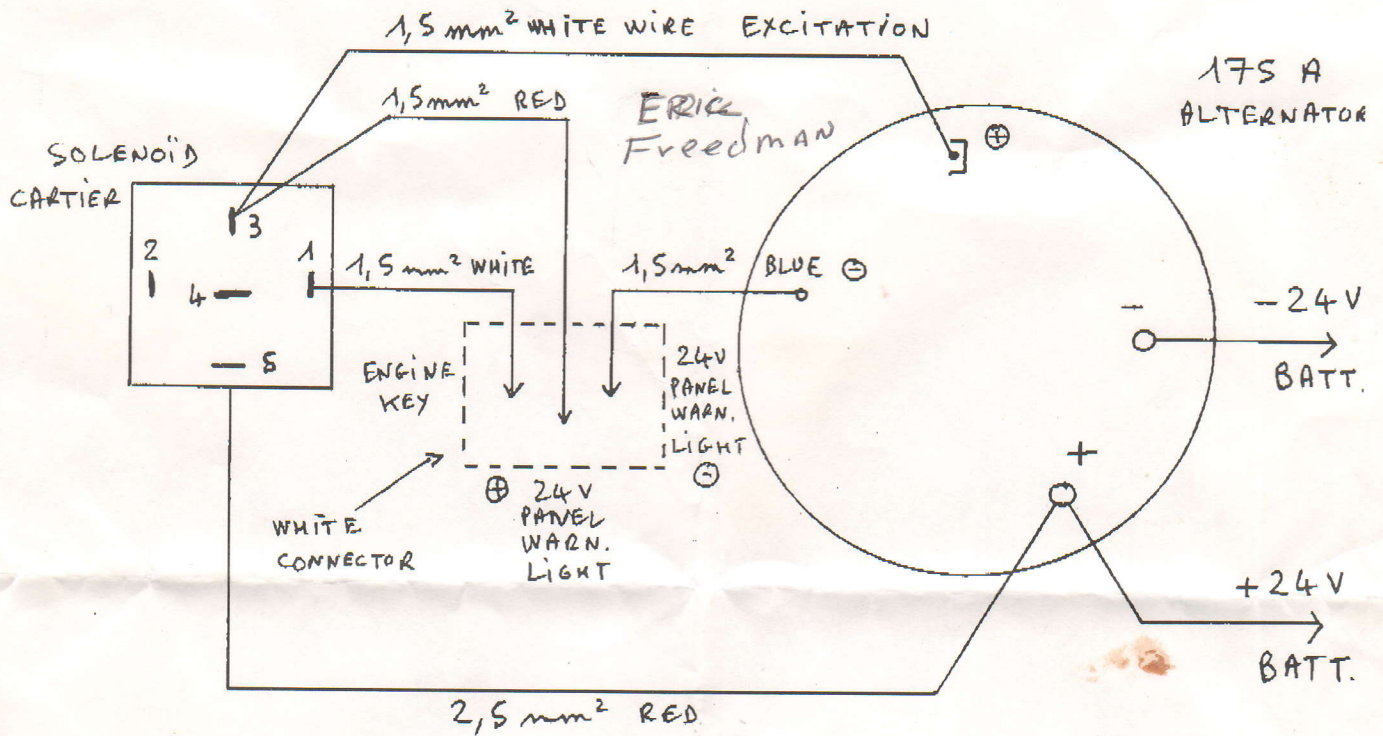 1,5 mm² WHITE WIRE EXCITATION
175 A
ALTERNATOR
1,5 mm² RED
Freedman
⊕
SOLENOÏD
CARTIER
3
2
1
4
5
1,5 mm² WHITE
1,5 mm² BLUE ⊖
-
-24V
BATT.
ENGINE
KEY
24V
PANEL
WARN.
LIGHT
⊖
⊕ 24V
PANEL
WARN.
LIGHT
WHITE
CONNECTOR
+
+24V
BATT.
2,5 mm² RED